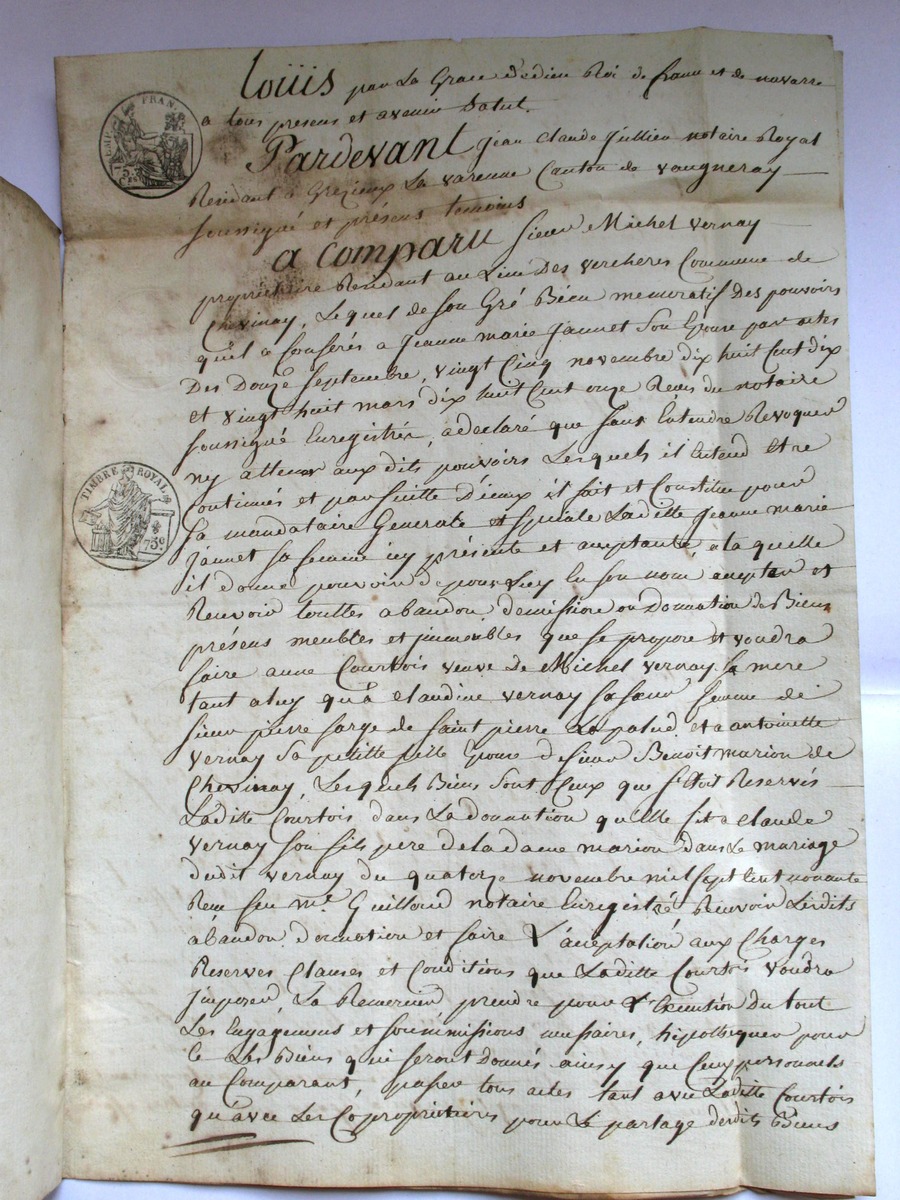 Loüis par La Grace de dieu Roi de france et de navarre
a tous presens et avenir Salut.
EMP. FRAN.
75.c
Pardevant jean Claude Jullien notaire Royal
Residant a Grezieux La varenne Canton de vaugneray
soussigné et présens temoins
a Comparu sieur Michel vernay
proprietaire Résidant au Lieu Des verchères Commune de
Chevinay, Lequel de son Gré Bien memoratif Des pouvoirs
quil a Conférés a Jeanne marie Jannet son Epouse par actes
Des Douze Septembre, vingt Cinq novembre dix huit Cent dix
et vingt huit mars dix huit Cent onze Reçus du notaire
soussigné Enregistrés, a déclaré que sans Entendre Revoquer
ny attenter aux dits pouvoirs Lesquels il Entend Etre
Continués et par suitte D'iceux il fait et Constitue pour
TIMBRE ROYAL
75c
Sa mandataire Generale et spéciale Laditte Jeanne marie
Jannet sa femme icy présente et acceptante a la quelle
il donne pouvoir de pour Luy En son nom accepter et
Recevoir touttes abandon, demission ou Donnation de Biens
présens meubles et immeubles que se propose et voudra
faire anne Courtois veuve de Michel vernay sa mere
tant a luy qu'a claudine vernay sa sœur femme de
sieur pierre farge de saint pierre La palud, et a antoinette
vernay sa petitte fille Epouse de sieur Benoit marion de
Chevinay, Lesquels Biens sont Ceux que s'Etoit Reservés
Laditte Courtois dans La donnation qu'Elle fit a Claude
vernay son fils pere de la dame marion dans Le mariage
dudit vernay du quatorze novembre mil sept Cent nonante
Reçu feu me. Guilloud notaire Enregistré Recevoir Lesdits
abandon, donnation et faire L'acceptation aux Charges
Reserves Clauses et Conditions que Laditte Courtois voudra
imposer, La Remercier, prendre pour L'Execution du tout
Les Engagemens et soummissions necessaires, hipothequer pour
ce Les Biens qui seront Donnés ainsy que Ceux personnels
au Comparant, passer tous actes tant avec Laditte Courtois
qu'avec Les Coproprietaires pour Le partage desdits Biens